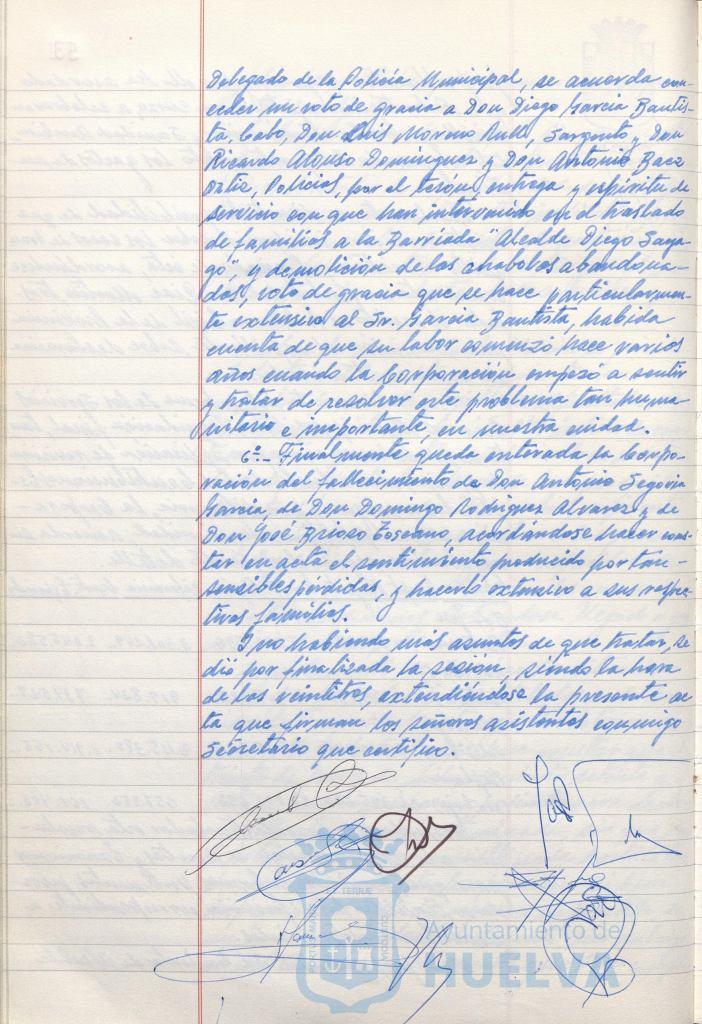 Delegado de la Policía Municipal, se acuerda con-
ceder un voto de gracia a Don Diego Garcia Bautis-
ta, Cabo, Don Luis Moreno Rull, Sargento y Don
Ricardo Alonso Dominguez y Don Antonio Baez
Ortiz, Policías, por el tesón, entrega y espíritu de
servicio con que han intervenido en el traslado
de familias a la Barriada "Alcalde Diego Saya-
go", y demolición de las chabolas abandona-
das, voto de gracia que se hace particularmen-
te extensivo al Sr. Garcia Bautista, habida
cuenta de que su labor comenzó hace varios
años cuando la Corporación empezó a sentir
y tratar de resolver este problema tan huma-
nitario e importante, en nuestra ciudad.
6º.- Finalmente queda enterada la Corpo-
ración del fallecimiento de Don Antonio Segovia
Garcia, de Don Domingo Rodriguez Alvarez y de
Don José Brioso Toscano, acordándose hacer cons-
tar en acta el sentimiento producido por tan
sensibles pérdidas, y hacerlo extensivo a sus respec-
tivas familias.
Y no habiendo más asuntos de que tratar, se
dió por finalizada la sesión, siendo la hora
de las veintitres, extendiéndose la presente ac-
ta que firman los señores asistentes conmigo
Secretario que certifico.
Ayuntamiento de
HUELVA